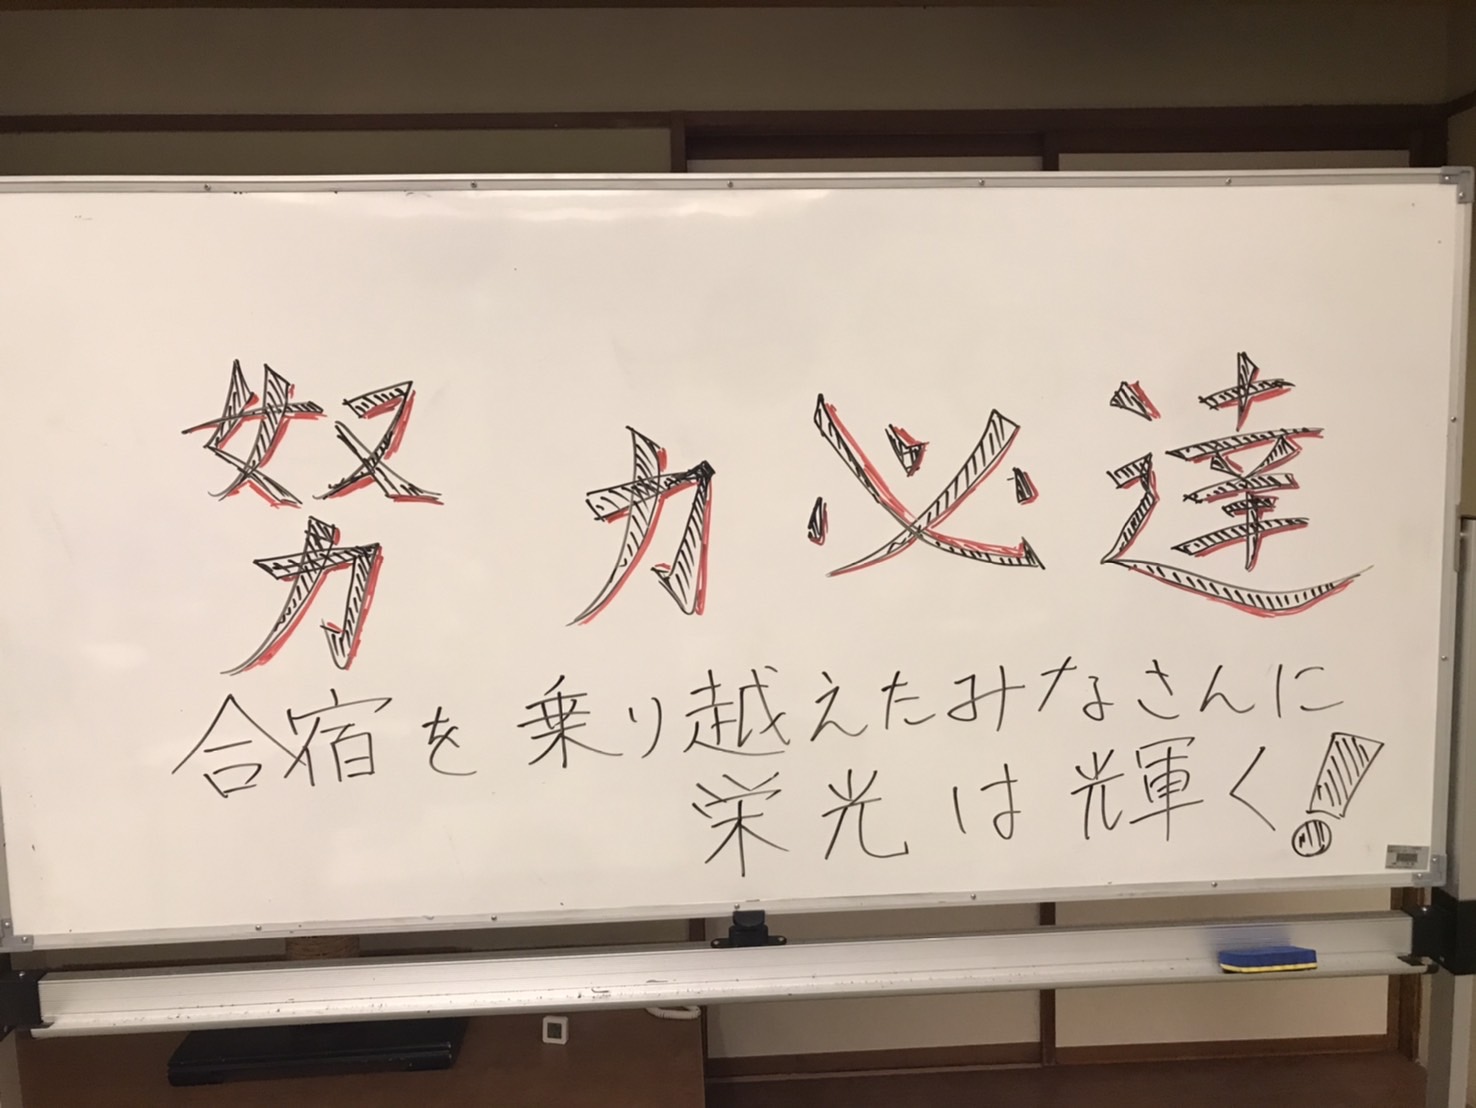 努力必達
合宿を乗り越えたみなさんに
栄光は輝く!